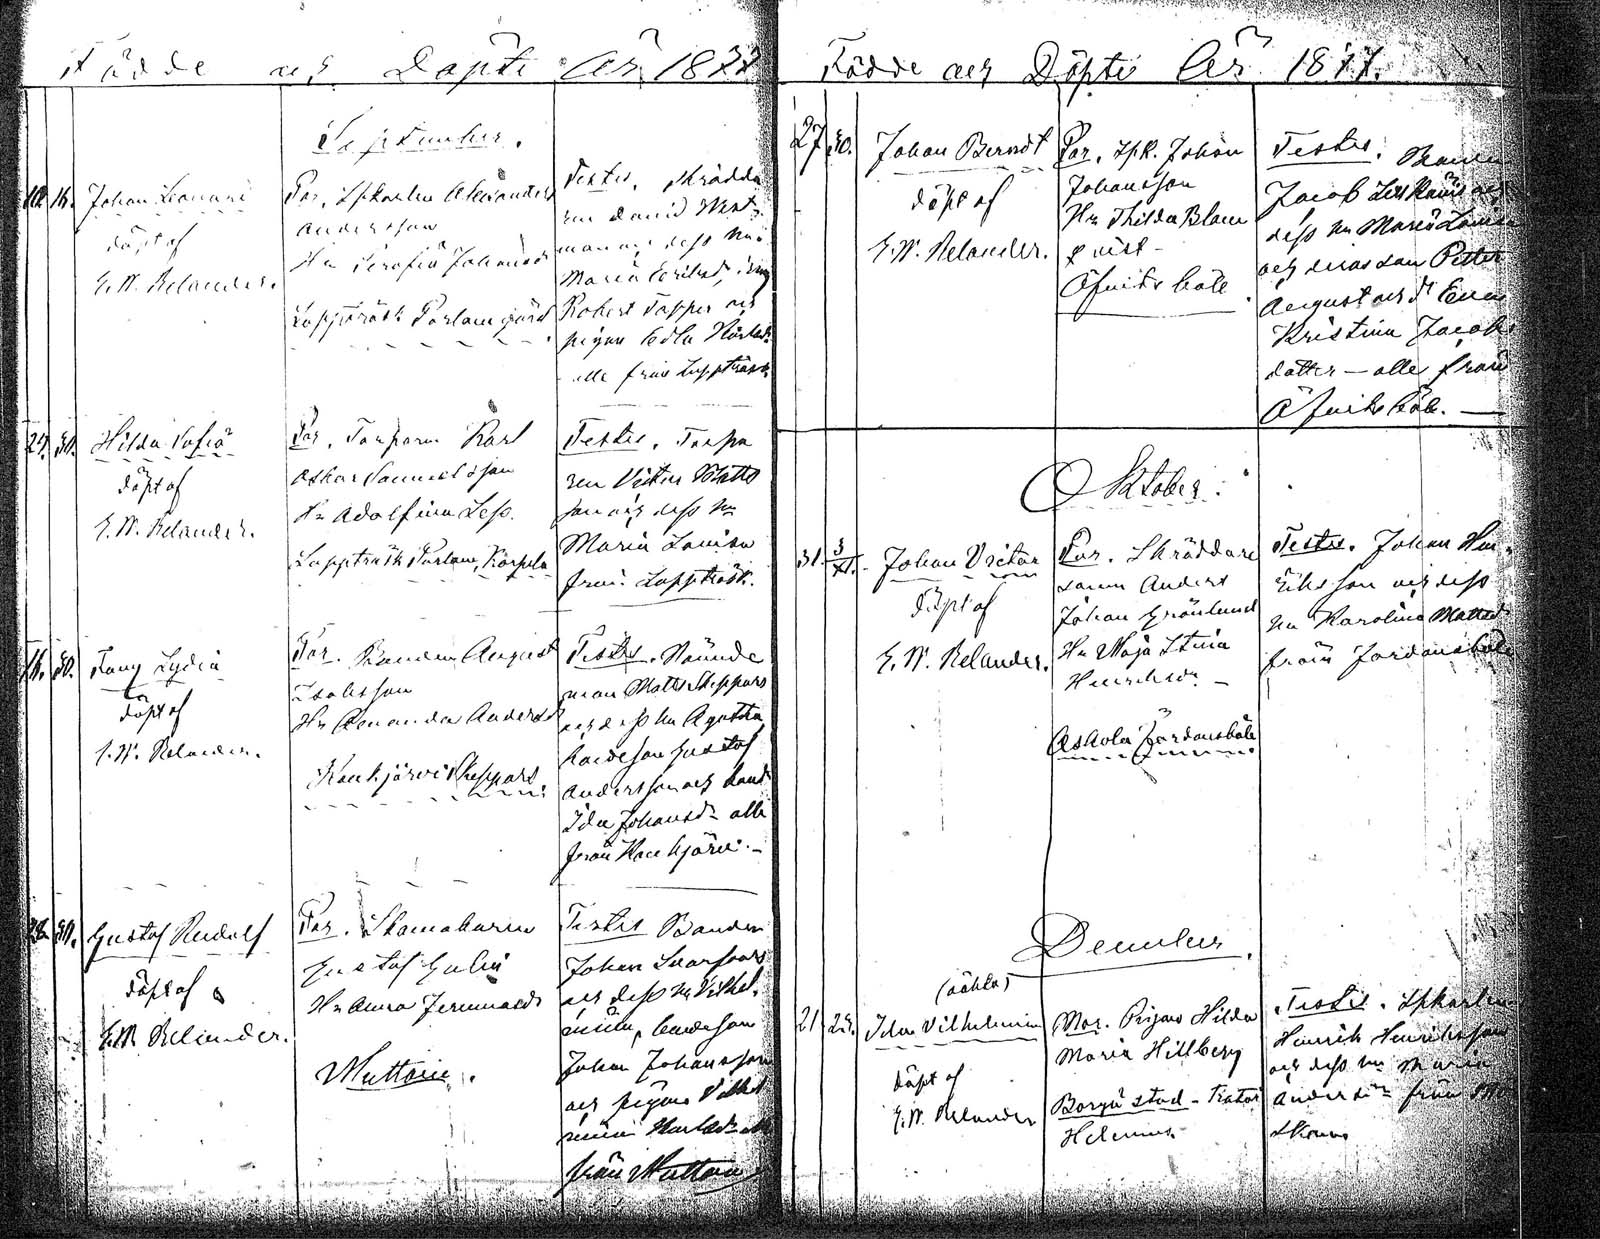 Födde och Döpte År 1877
September.
16.
Johan Leonard
döpt af
E. W. Relander.
För. Spkarlen Alexander
Andersson
Hu Serafia Johansdr
Lappträsk Porlamgård
Testes. Skrädda
ren David West
man och dess hu
Maria
Robert Topper och
pigan Edla
alla från Lappträsk
27. 30.
Hilda Sofia
döpt af
E. W. Relander.
För. Torparen Karl
Oskar Samuelsson
Hu Adolfina
Lappträsk Porlam, Körpela
Testes. Torpa
ren Victor Matts
son och dess hu
Maria Lovisa
från Lappträsk.
16. 30.
Fany Lydia
döpt af
E. W. Relander.
För. Bonden August
Isaksson
Hu Amanda Andersdr
Kankjärvi Skeppars
Testes. Nämnde
man Matts Skeppars
och dess hu Agatha
bondeson Gustaf
Andersson och bond
Ida Johansdr alla
från Kankjärvi. –
28. 30.
Gustaf Rudolf
döpt af
E. W. Relander.
För. Skomakaren
Gustaf Gulin
Hu Anna
Muttom.
Testes Bonden
Johan
och dess hu Vilhel-
mina, bondeson
Johan Johansson
och pigan Vilhel
mina
från Muttom
Födde och Döpte År 1877.
27 30.
Johan Berndt
döpt af
E. W. Relander.
För. Spk. Johan
Johansson
Hu Thilda Blom
qvist –
Öfvitsböle
Testes. Bonden
Jacob
dess hu Maria Lovisa
och deras son Petter
August och dr Eva
Kristina Jacobs
dotter – alla från
Öfvitsböle. –
Oktober.
31. 3/XI.
Johan Victor
döpt af
E. W. Relander.
För. Skräddare
sonen Anders
Johan Grönlund
Hu Maja Stina
Henriksdr –
Askola Jordansböle
Testes. Johan Hen.
Eriksson och dess
hu Karolina Mattsd
från Jordansböle
December.
(oäkta)
21 25.
Ida Vilhelmina
döpt af
E. W. Relander
Mor. Pigan Hilda
Maria Hillberg
Borgå stad –
Helenius
Testes. Spkarlen
Henrik Henriksson
och dess hu Maria
Andersdr från